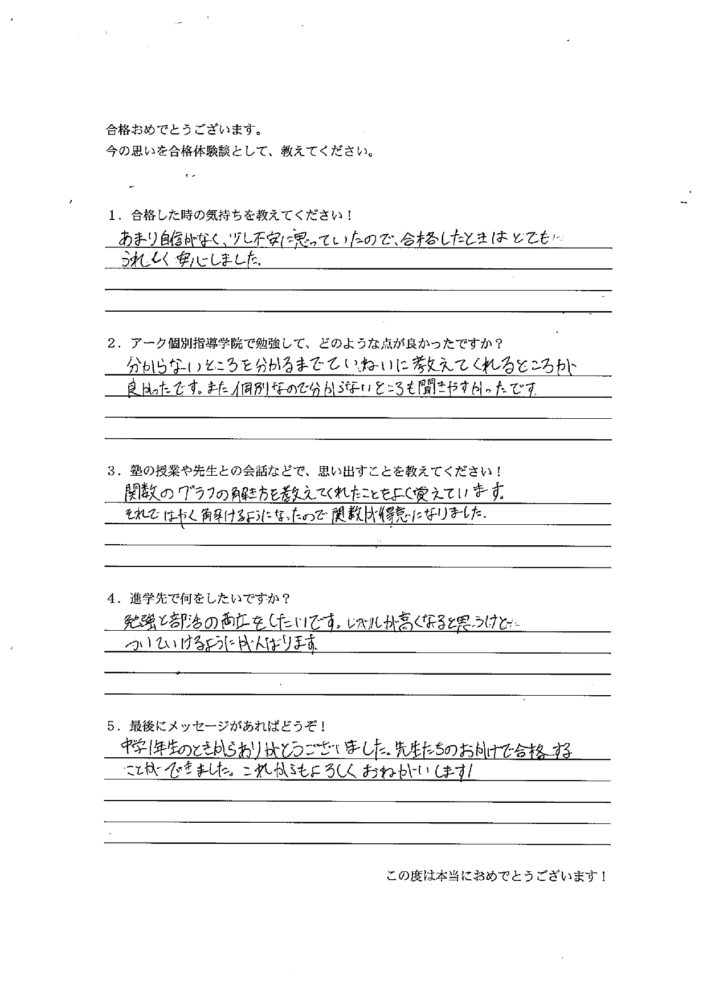 合格おめでとうございます。
今の思いを合格体験談として、教えてください。
1．合格した時の気持ちを教えてください！
あまり自信がなく、少し不安に思っていたので、合格したときはとても
うれしく安心しました。
2．アーク個別指導学院で勉強して、どのような点が良かったですか？
分からないところを分かるまでていねいに教えてくれるところが
良かったです。また個別なので分からないところも聞きやすかったです。
3．塾の授業や先生との会話などで、思い出すことを教えてください！
関数のグラフの解き方を教えてくれたことをよく覚えています。
それではやく解けるようになったので関数が得意になりました。
4．進学先で何をしたいですか？
勉強と部活の両立をしたいです。レベルが高くなると思うけど
ついていけるようにがんばります。
5．最後にメッセージがあればどうぞ！
中学1年生のときからありがとうございました。先生たちのおかげで合格する
ことができました。これからもよろしくおねがいします!
この度は本当におめでとうございます！